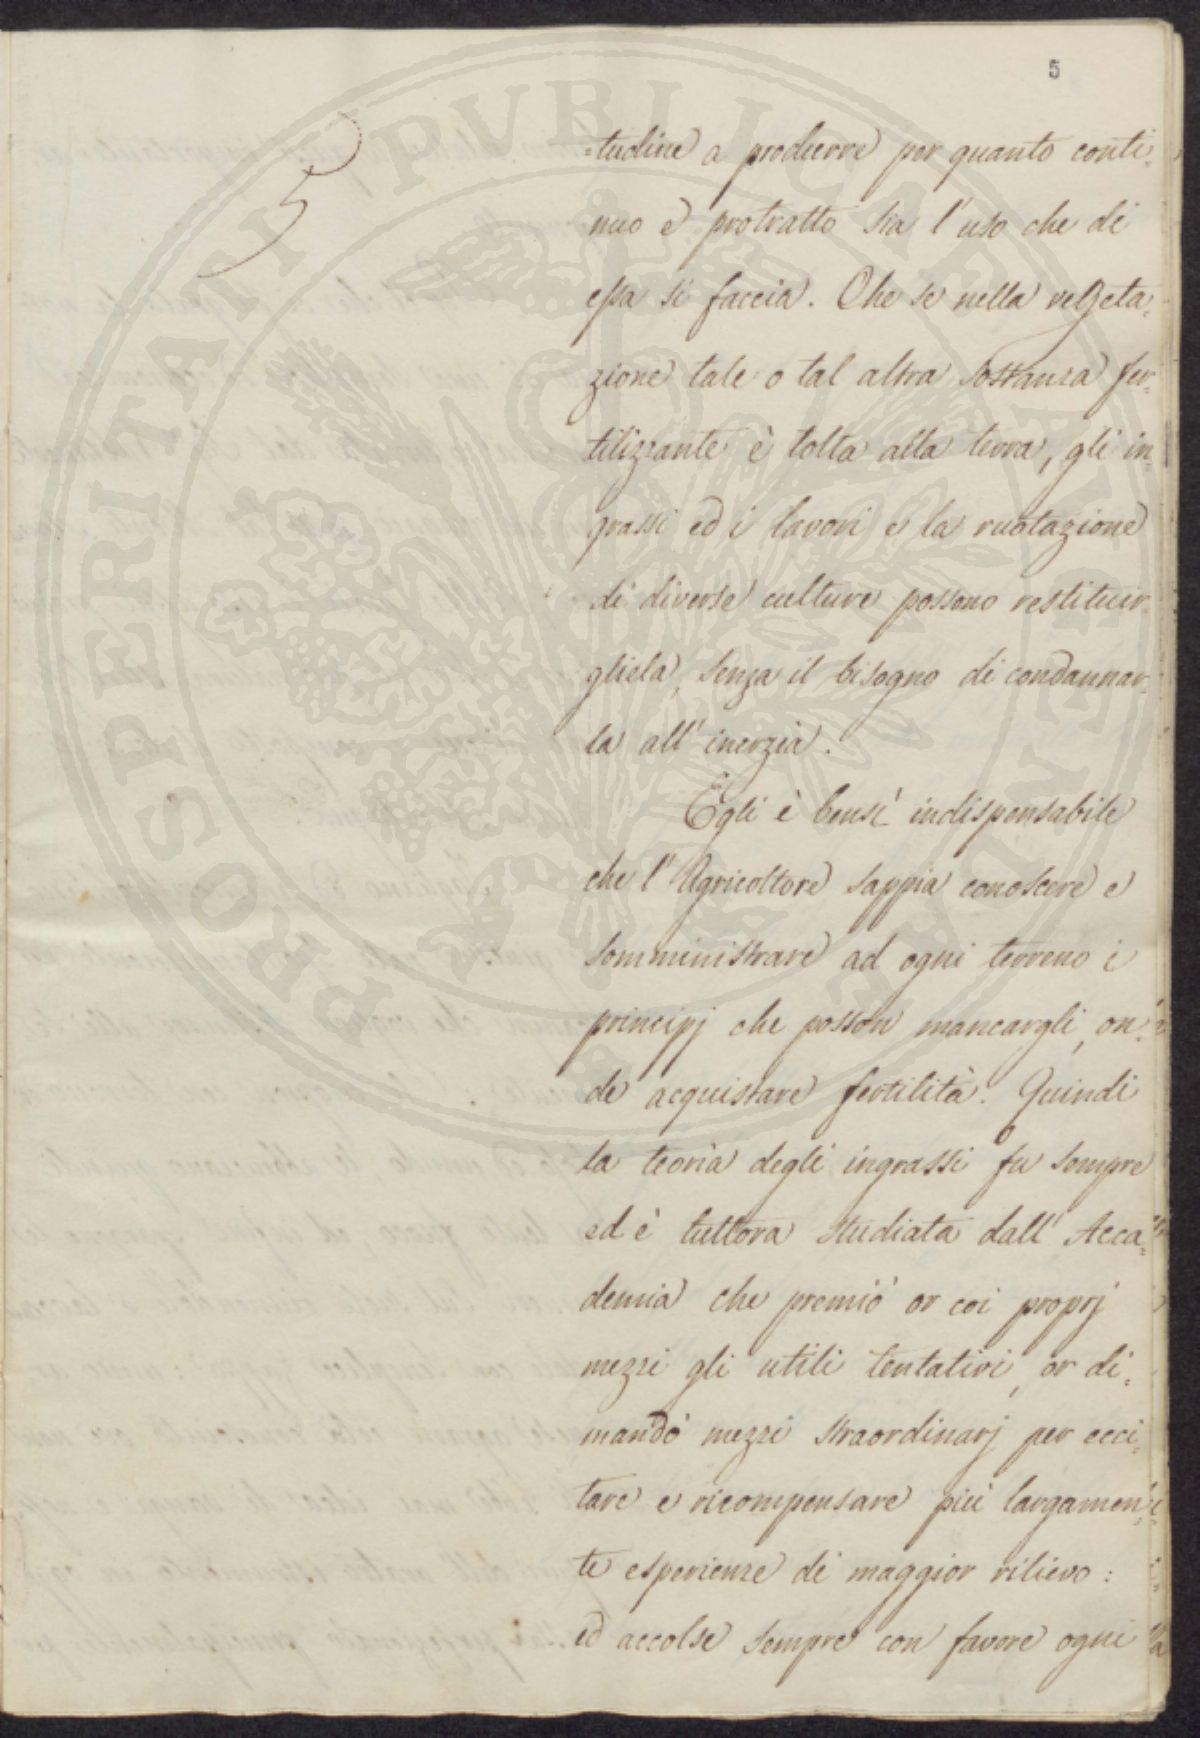 5
5
=tudine a produrre per quanto conti=
nuo e protratto sia l'uso che di
essa si faccia. Che se nella vegeta=
zione tale o tal altra sostanza fer=
tilizzante è tolta alla terra, gli in=
grassi ed i lavori e la ruotazione
di diverse culture possono restituir
gliela, senza il bisogno di condannar=
la all'inerzia.
Egli è bensì indispensabile
che l'Agricoltore sappia conoscere e
somministrare ad ogni terreno i
principj che posson mancargli, on=
de acquistare fertilità. Quindi
la teoria degli ingrassi fu sempre
ed è tuttora studiata dall'Acca=
demia che premiò or coi proprj
mezzi gli utili tentativi, or di=
mandò mezzi straordinarj per ecci=
tare e ricompensare più largamen=
te esperienze di maggior rilievo:
ed accolse sempre con favore ogni
PROSPERITATI PUBLICAE AUGENDAE